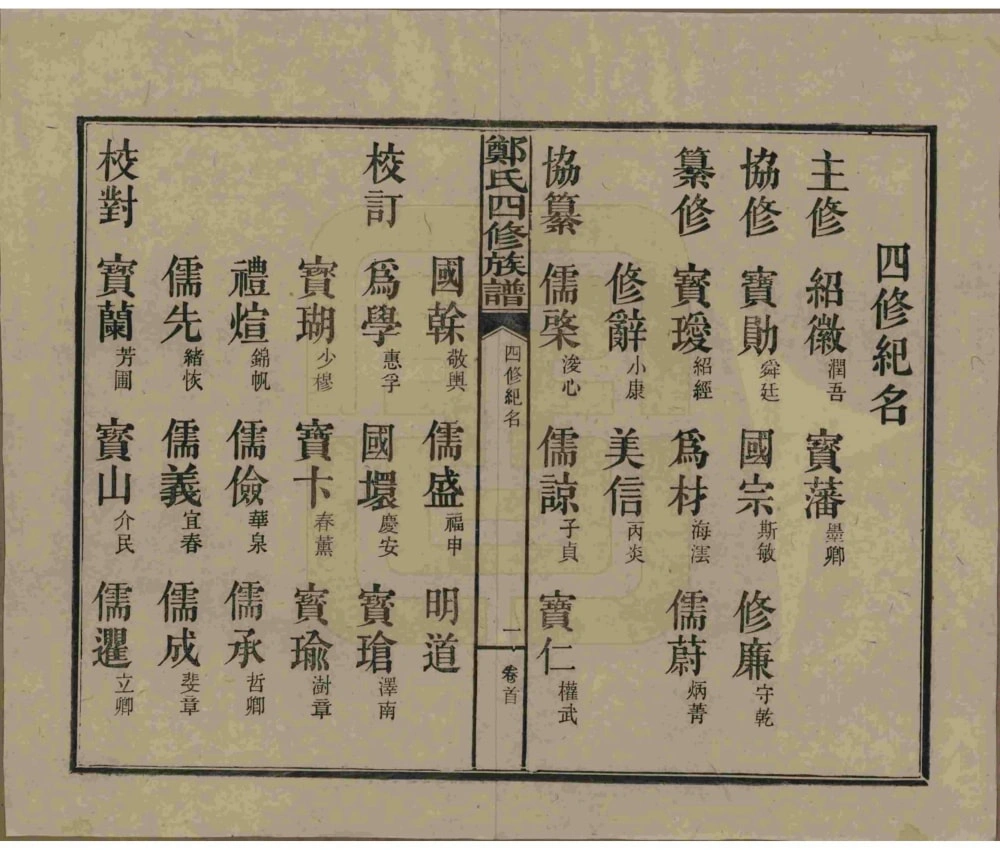 四修紀名
主修 紹徽 潤吾 寳藩 墨卿
協修 寳勛 舜廷 國宗 斯敏 修廉 守乾
纂修 寳璦 紹經 爲材 海澐 儒蔚 炳菁
修辭 小康 美信 丙炎
協纂 儒棨 浚心 儒諒 子貞 寳仁 權武
鄭氏四修族譜 四修紀名 一 卷首
國榦 敬輿 儒盛 福申 明道
校訂 爲學 惠孚 國環 慶安 寳瑲 澤南
寳瑚 少樛 寳卞 春薰 寳瑜 澍章
禮煊 錦帆 儒儉 華泉 儒承 哲卿
儒先 緒恢 儒義 宜春 儒成 斐章
校對 寳蘭 芳圃 寳山 介民 儒暹 立卿